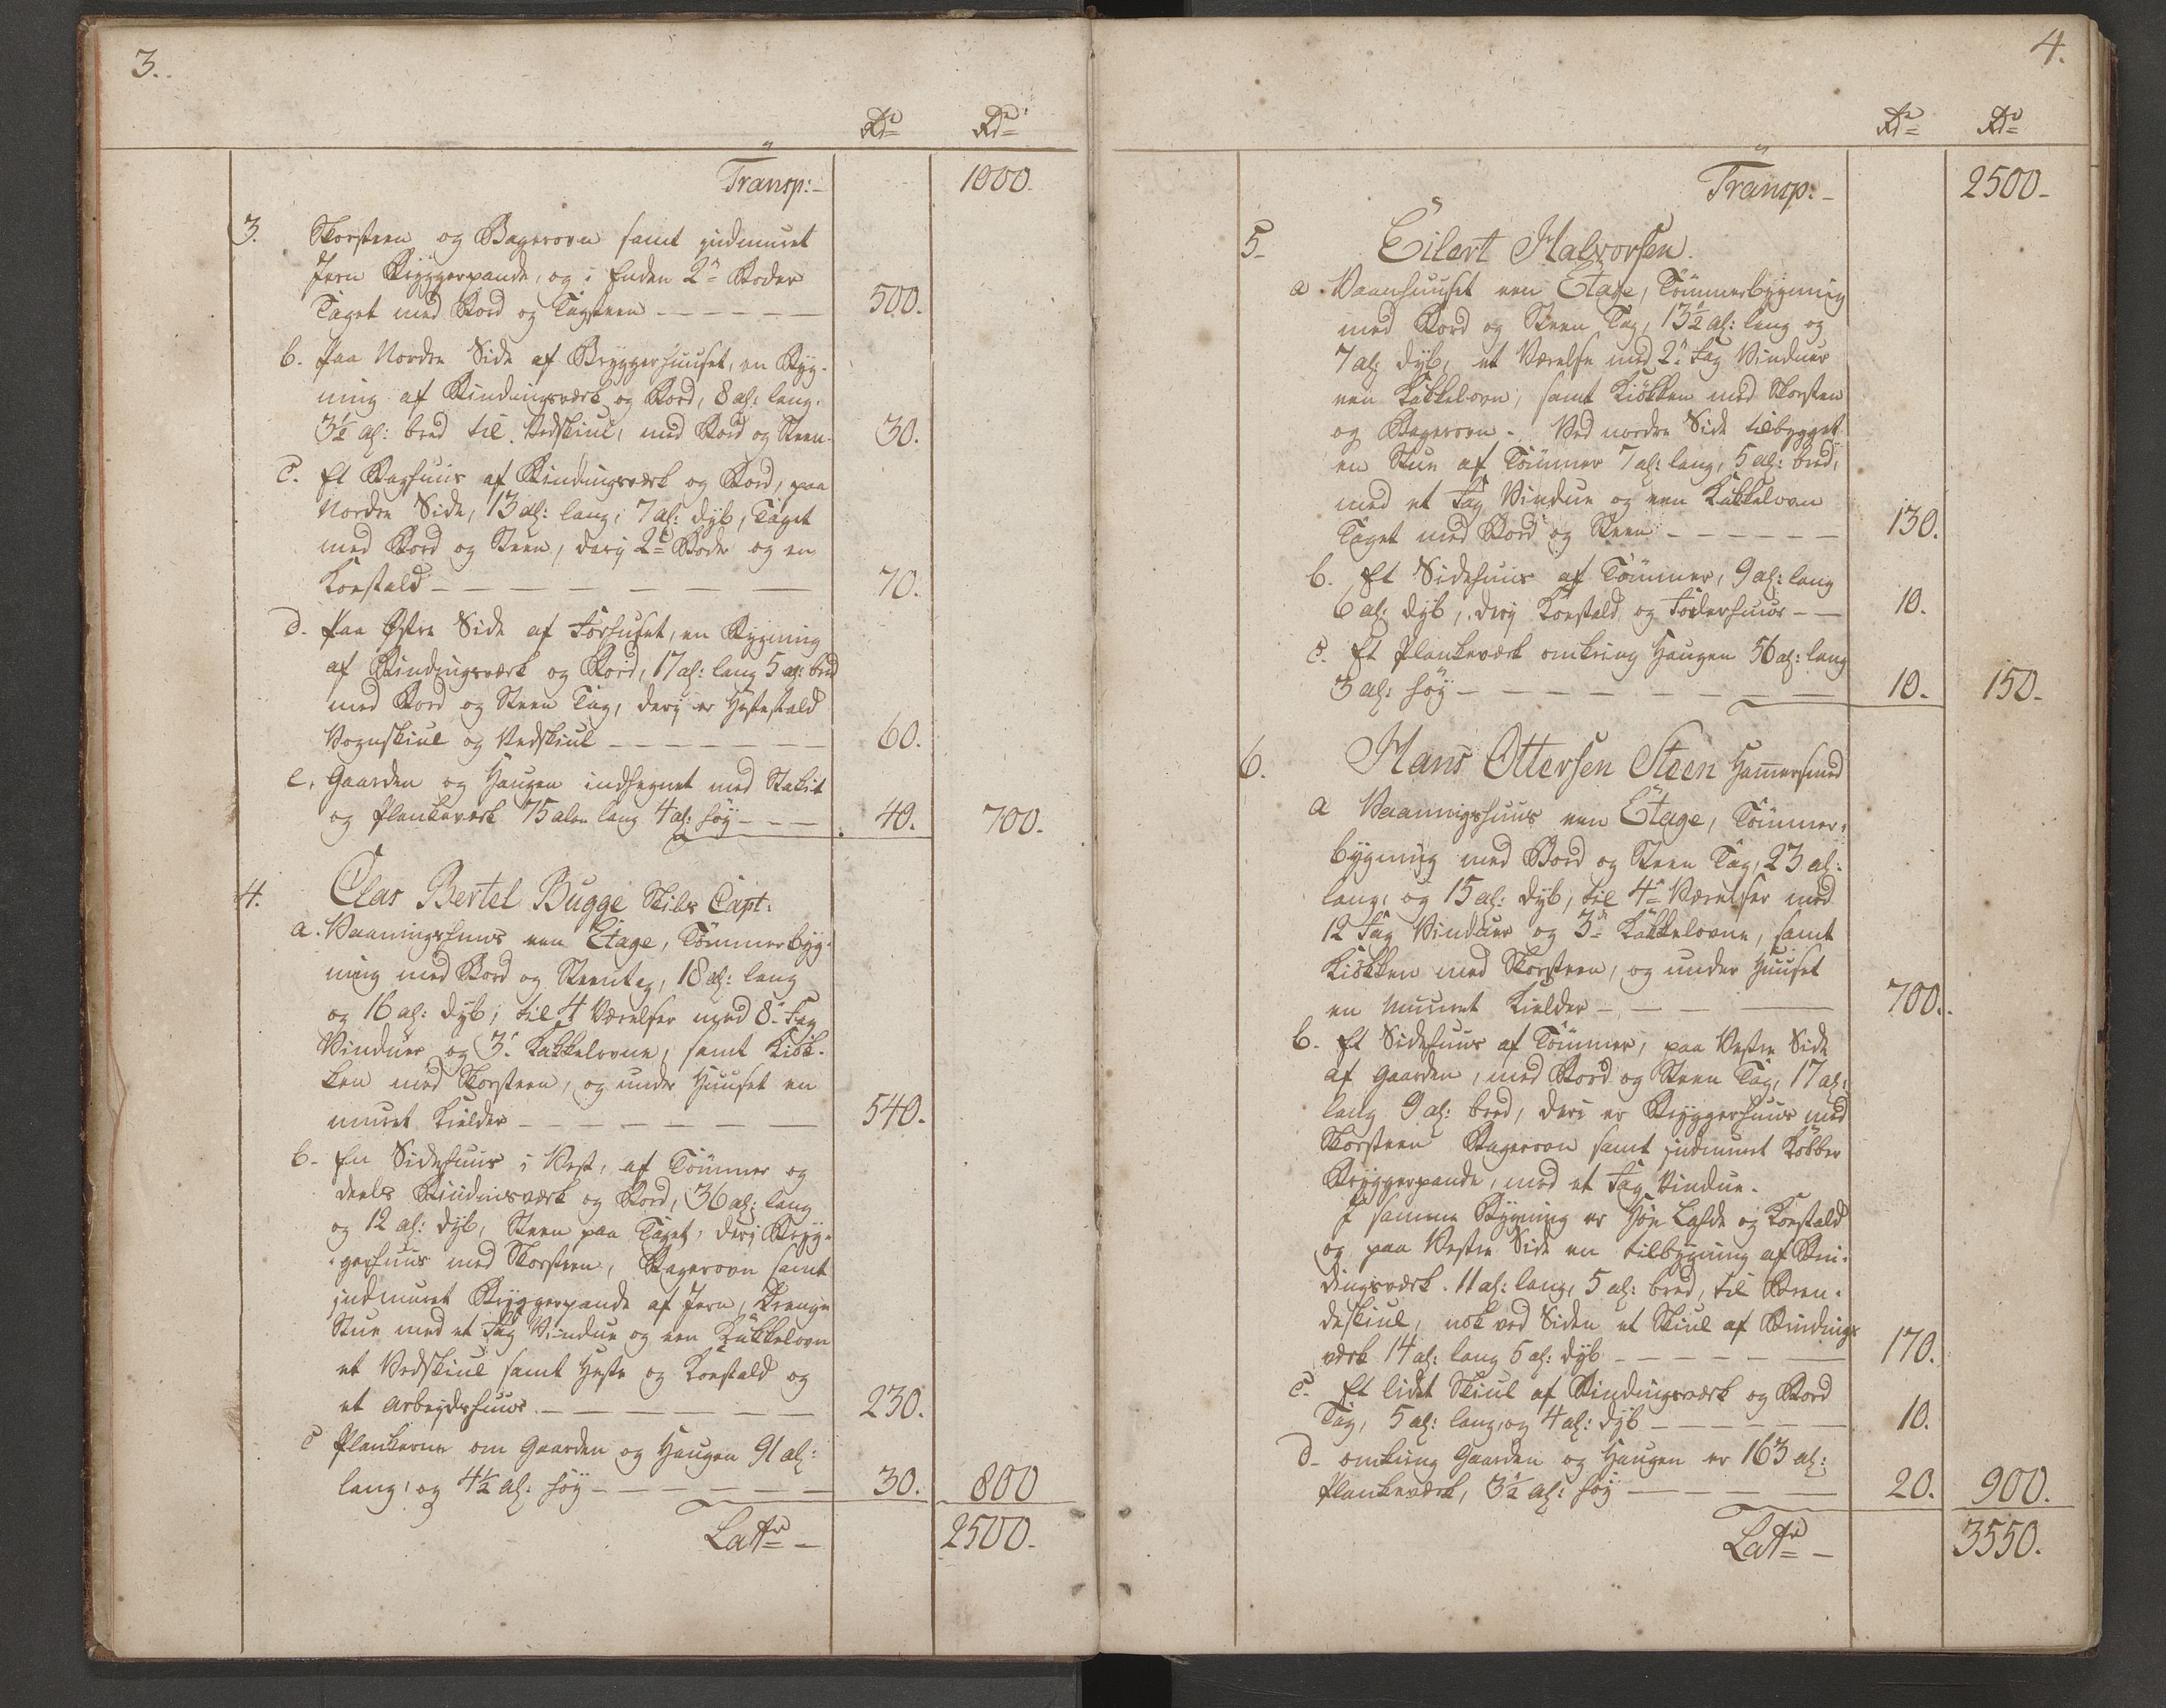 3.
Rdr Rdr
Transp:- 1000.
3. Skorsteen og Bagerovn samt indmuret
Jern Bryggerpande, og i Enden 2de Boder
Taget med Bord og Tagsteen 500.
b. Paa Nordre Side af Bryggerhuuset, en Byg-
ning af Bindingsværk og Bord, 8 al: lang,
3½ al: bred til Vedskiul, med Bord og Steen. 30.
c. Et Baghuus af Bindingsværk og Bord, paa
Nordre Side, 13 al: lang, 7 al: dyb, Taget
med Bord og Steen, derj 2de Boder og en
Koestald 70.
d. Paa Østre Side af Forhuset, en Bygning
af Bindingsværk og Bord, 17 al: lang 5 al: bred
med Bord og Steen Tag, derj er Hestestald
Vognskiul og Vedskiul 60.
e. Gaarden og Haugen indhegnet med Stakit
og Plankeværk 75 alen lang 4 al: høy 40. 700.
4. Clas Bertel Bugge Skibs Capt:
a. Vaaningshuus een Etage, Tømmerbyg-
ning med Bord og Steentag, 18 al: lang
og 16 al: dyb, til 4 Værelser med 8 Fag
Vinduer og 3 Kakkelovne, samt Kiøk-
ken med Skorsteen, og under Huuset en
muret Kielder 540.
b. En Sidehuus i Vest, af Tømmer og
deels Bindinsværk og Bord, 36 al: lang
og 12 al: dyb, Steen paa Taget, derj Bryg-
gerhuus med Skorsteen, Bagerovn samt
jndmuret Bryggerpande af Jern, Drenge
Stue med et Fag Vindue og een Kakkelovn
et Vedskiul samt Heste og Koestald og
et Arbeydshuus 230.
c Plankerne om Gaarden og Haugen 91 al:
lang, og 4½ al: høy 30. 800
Lattr 2500.
4.
Rdr Rdr
Transp:- 2500-
5- Eilert Halvorsen.
a Vaanhuuset een Etage, Tømmerbygning
med Bord og Steen Tag, 13½ al: lang og
7 al: dyb, et Værelse med 2 Fag Vinduer
een Kakkelovn, samt Kiøkken med Skorsten
og Bagerovn. Ved nordre Side tilbygget
en Stue af Tømmer 7 al: lang, 5 al: bred,
med et Fag Vindue og een Kakkelovn
Taget med Bord og Steen 130.
b. Et Sidehuus af Tømmer, 9 al: lang
6 al: dyb, derj Koestald og Foderhuus 10.
c. Et Plankeværk omkring Haugen 56 al: lang
3 al: høy 10. 150-
6. Hans Ottersen Steen Hamersmed
a Vaaningshuus een Etage, Tømmer-
bygning med Bord og Steen Tag, 23 al:
lang, og 15 al: dyb, til 4 Værelser med
12 Fag Vinduer og 3 Kakkelovne, samt
Kiøkken med Skorsteen, og under Huuset
en muuret Kielder 700.
b. Et Sidehuus af Tømmer, paa Vestre Side
af Gaarden, med Bord og Steen Tag, 17 al:
lang 9 al: bred, deri er Bryggerhuus med
Skorsteen Bagerovn samt jndmuret Kobber
Bryggerpande, med et Fag Vindue.
I samme Bygning er Høe Lade og Koestald
og paa Vestre Side en tilbygning af Bin-
dingsværk. 11 al: lang, 5 al: bred, til Bren-
deskiul, nok ved Siden et Skiul af Bindings
værk 14 al: lang 5 al: dyb 170.
c. Et lidet Skiul af Bindingsværk og Bord
Tag, 5 al: lang, og 4 al: dyb 10.
d- omkring Gaarden og Haugen er 163 al:
Plankeværk, 3½ al: høy 20. 900.
Lattr 3550.